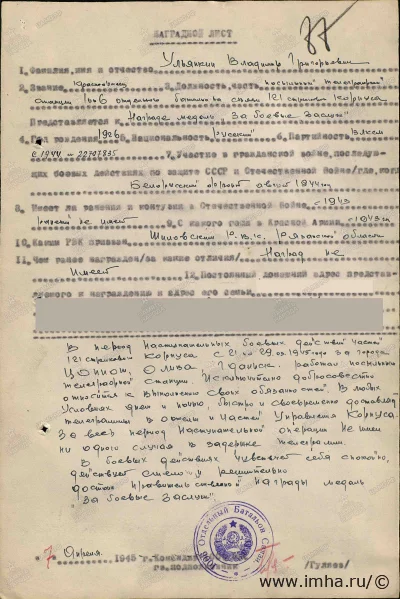 37
НАГРАДНОЙ ЛИСТ
1. Фамилия, имя и отчество Ульянкин Владимир Григорьевич
2. Звание красноармеец 3. Должность, часть посыльный телеграфной
станции 1006 отдельного батальона связи 121 стрелкового Корпуса
Представляется к Награде медаль "За боевые Заслуги"
4. Год рождения 1926 5. Национальность Русский 6. Партийность ВЛКСМ
с 1944 - 22707835 7. Участие в гражданской войне, последую-
щих боевых действиях по защите СССР и Отечественной Войне/где, когда
Белорусский фронт август 1944 год
8. Имеет ли ранения и контузии в Отечественной Войне с 1943
ранений не имеет 9. С какого года в Красной Армии с 1943 г.
10. Каким РВК призван Шиловский Р.В.К. Рязанской области
11. Чем ранее награжден/за какие отличия/ Наград не
имеет 12. Постоянный домашний адрес представ-
ляемого к награждению и адрес его семьи
В период Наступательных боевых действий частей
121 стрелковой Корпуса с 21 по 29.03.1945 года за города
Цоппот, Олива, Гданьск, работая посыльным
телеграфной станции, Исключительно добросовестно
относится к выполнению своих обязанностей. В любых
условиях днем и ночью, быстро и своевременно доставлял
телеграммы в отделы и Частей Управления Корпуса.
За весь период Наступательной операции Не имел
ни одного случая в задержке телеграмм.
В боевых действиях чувствует себя спокойно,
действует смело и решительно
достоин Правительственной Награды медаль
"За боевые Заслуги".
1006 Отдельный Батальон Связи
"7" Апреля 1945 г.
гв. подполковник /Гуляев/
www.imha.ru/©